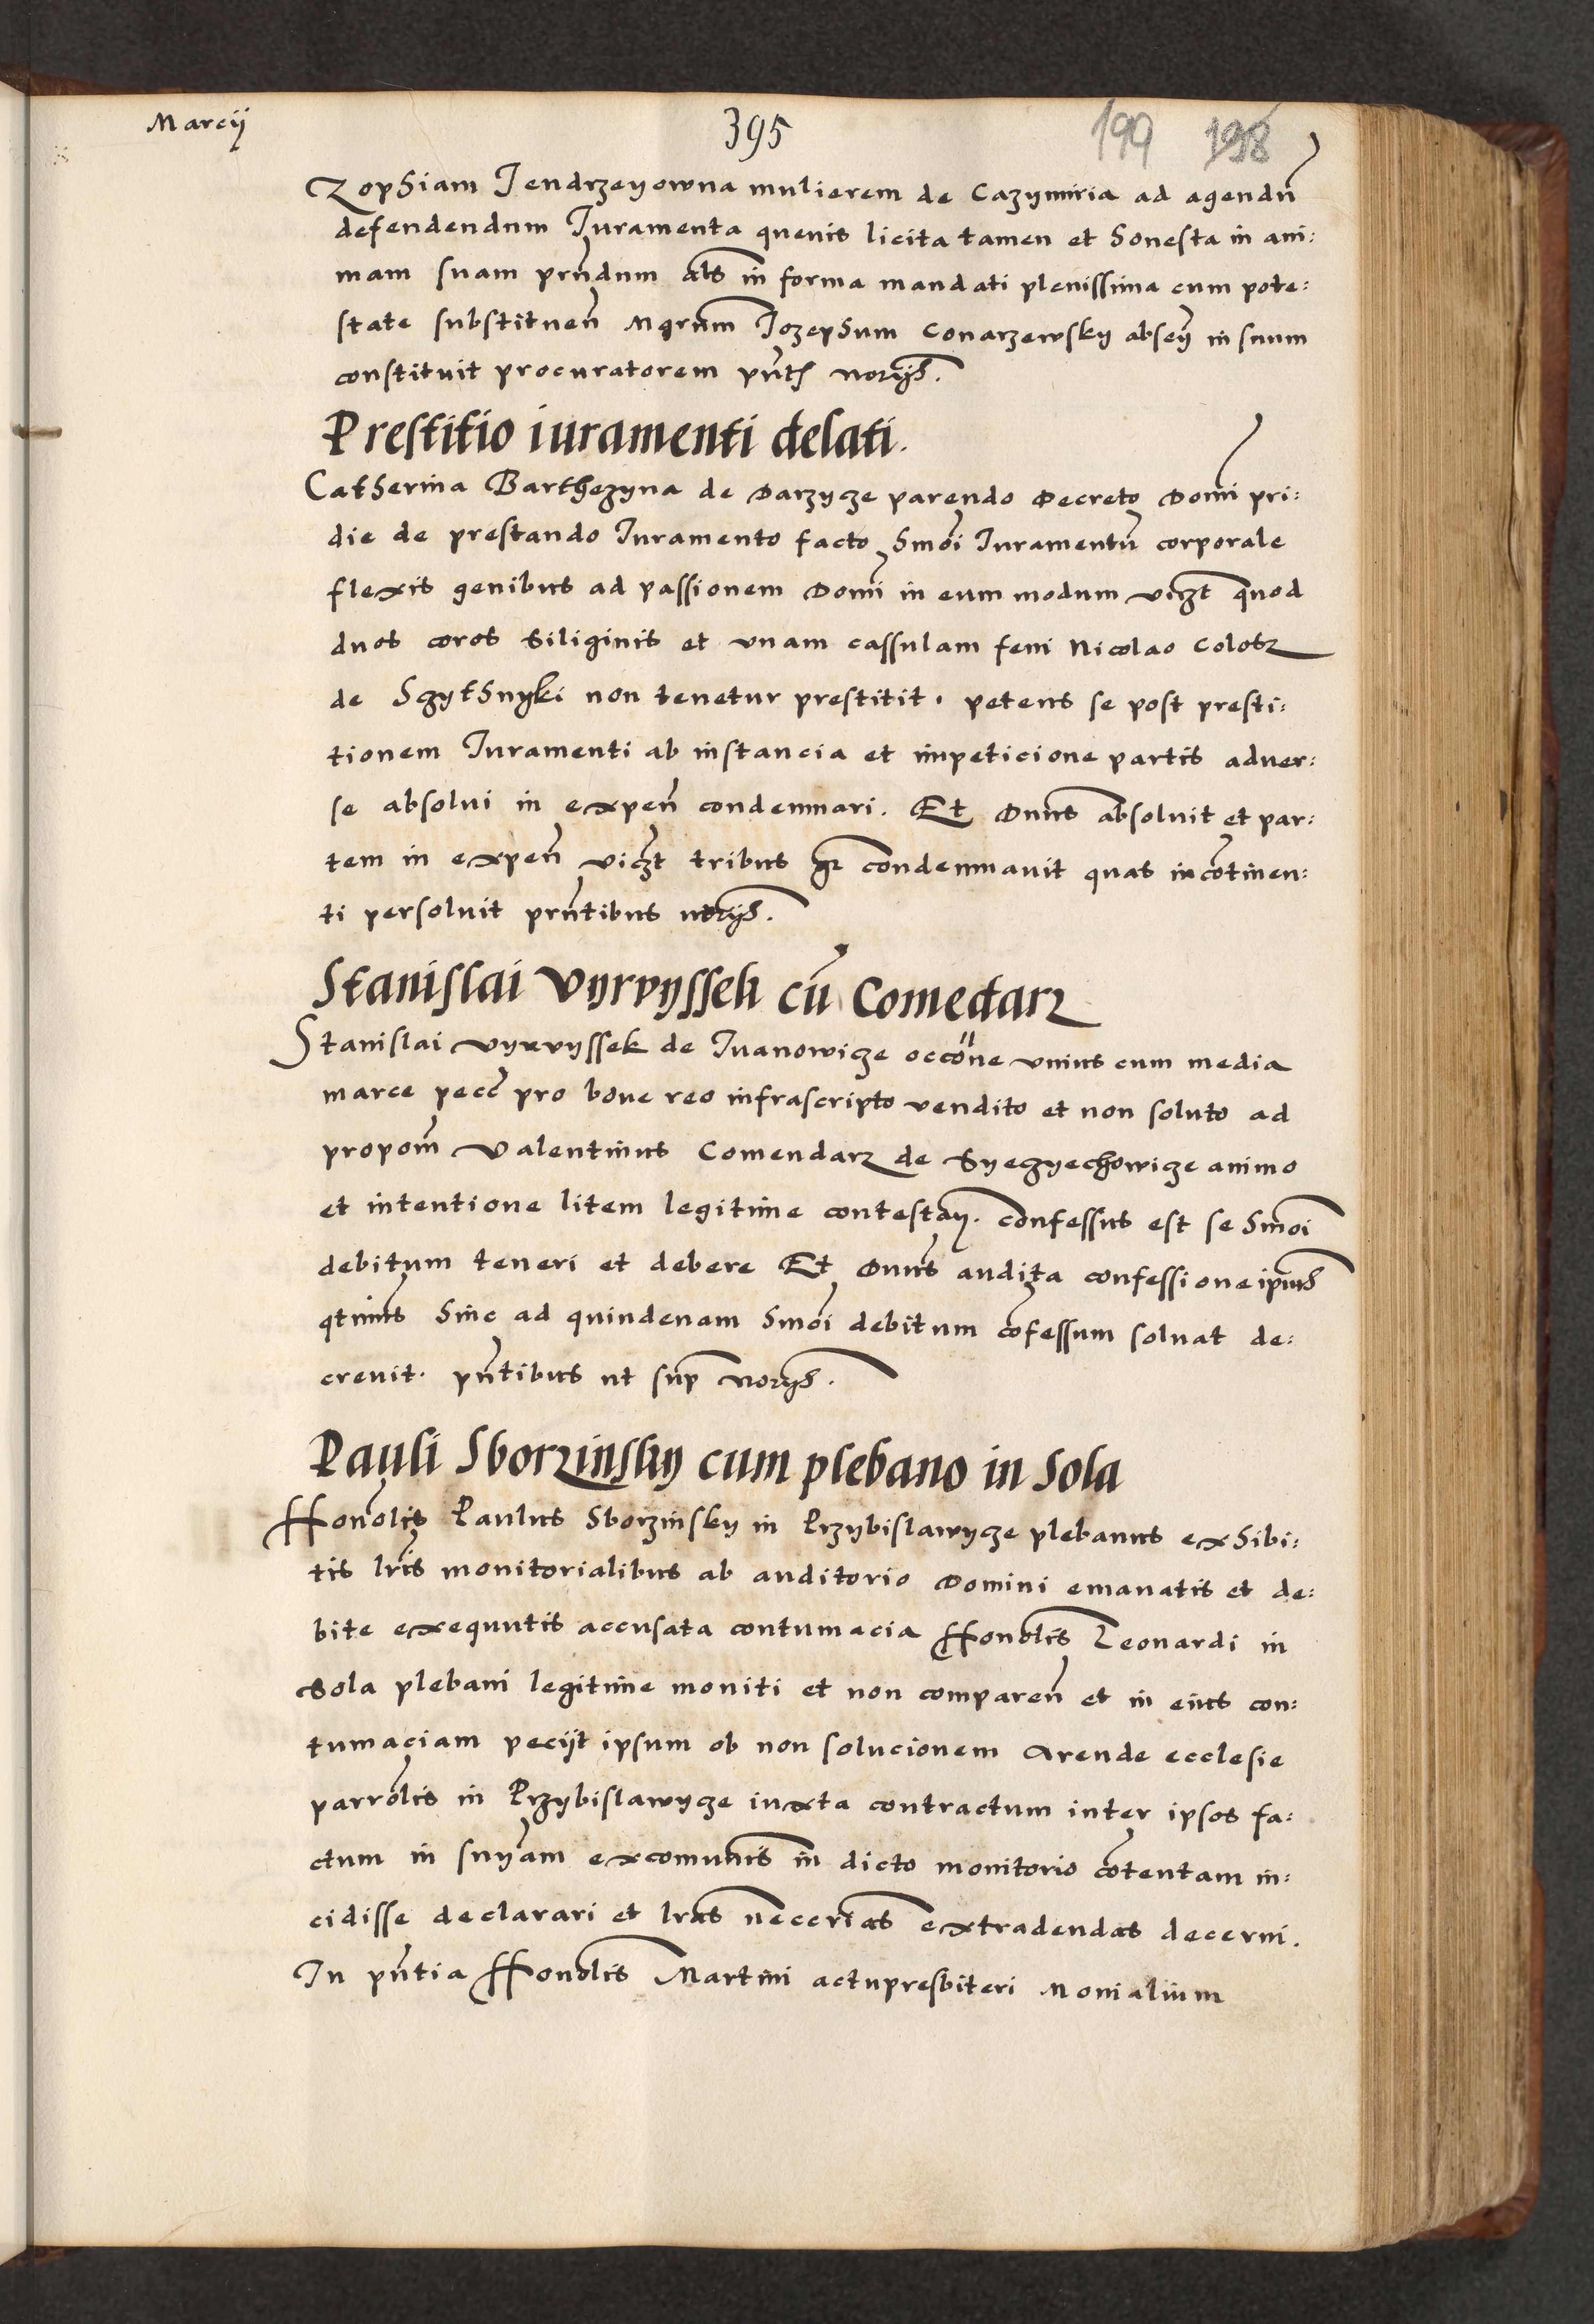 Marcij
395
199 198
Zophiam Jendrzeyowna mulierem de Cazymiria ad agendũ
defendendum Juramenta quevis licita tamen et honesta in ani:
mam suam prñdum als in forma mandati plenissima cum pote:
state substituen̄ Mgrum Jozephum Conarzewsky absen̄ in suum
constituit procuratorem pñt norijs.
Prestitio iuramenti delati.
Catherina Barthezyna de Darzycze parendo Decreto Domĩ pri:
die de prestando Juramento facto hmõi Juramentũ corporale
flexis genibus ad passionem Domĩ in eum modum vigt quod
duos coros siliginis et vnam cassulam feni Nicolao Colosz
de Sgythnyki non tenetur prestitit. petens se post presti:
tionem Juramenti ab instancia et impeticione partis adver:
se absolui in expen̄ condemnari. Et Dnus absoluit et par:
tem in expen̄ vigt tribus gr condemnauit quas incõtinen:
ti persoluit prñtibus notrijs.
Stanislai Vyrvyssek cũ Comedarz
Stanislai vyrvyssek de Iuanowicze occõne vnius cum media
marce pecc pro boue reo infrascripto vendito et non soluto ad
propom̃ Valentinus Comendarz de Syegyechowicze animo
et intentione litem legitime contestan̄. confessus est se hmõi
debitum teneri et debere Et Dnus audita confessione ipius
qtinus hinc ad quindenam hmõi debitum cõfessum soluat de:
creuit. pñtibus ut sup norijs.
Pauli Sborzinsky cum plebano in Sola
Honolis Paulus Sborzinsky in Przybislawycze plebanus exhibi:
tis lris monitorialibus ab auditorio Domini emanatis et de:
bite exequutis accusata contumacia Honolis Leonardi in
Sola plebani legitime moniti et non comparen̄ et in eius con:
tumaciam pecijt ipsum ob non solucionem Arende ecclesie
parrolis in Przybislawycze iuxta contractum inter ipsos fa:
ctum in snyam excomunis in dicto monitorio cõtentam in:
cidisse declarari et lras neccerias extradendas decerni.
In pñtia Honolis Martini actupresbiteri Monialium